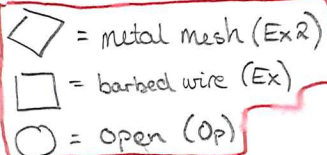 = metal mesh (Ex2)
= barbed wire (Ex)
= open (Op)